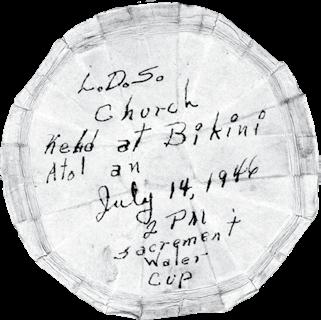 L.D.S.
Church
Held at Bikini
Atol an
July 14, 1946
2 PM
sacrement
Water
Cup